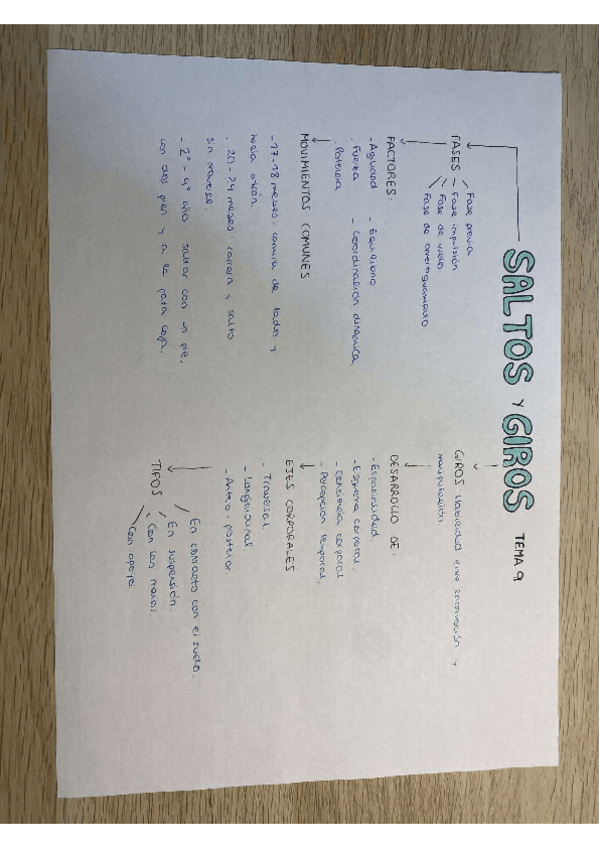 SALTOS Y GIROS TEMA 9
FASES
- Fase previa
- Fase impulsión
Fase de vuelo
Fase de amortiguamiento
FACTORES:
- Agilidad - Equilibrio
- Fuerza - Coordinación dinámica
- Potencia
MOVIMIENTOS COMUNES
- 17-18 meses: carrera de lado y
hacia atrás.
- 20-24 meses: carrera y salto
sin moverse.
- 2º - 4º año: saltar con un pie,
con dos pies y a la pata coja.
GIROS Habilidad entre locomoción y
manipulación
DESARROLLO DE:
- Espacialidad
- Esquema corporal
- Conciencia corporal
- Percepción temporal.
EJES CORPORALES
- Transversal
- Longitudinal
- Antero-posterior
TIPOS
En contacto con el suelo
En suspensión.
Con las manos
Con apoyo